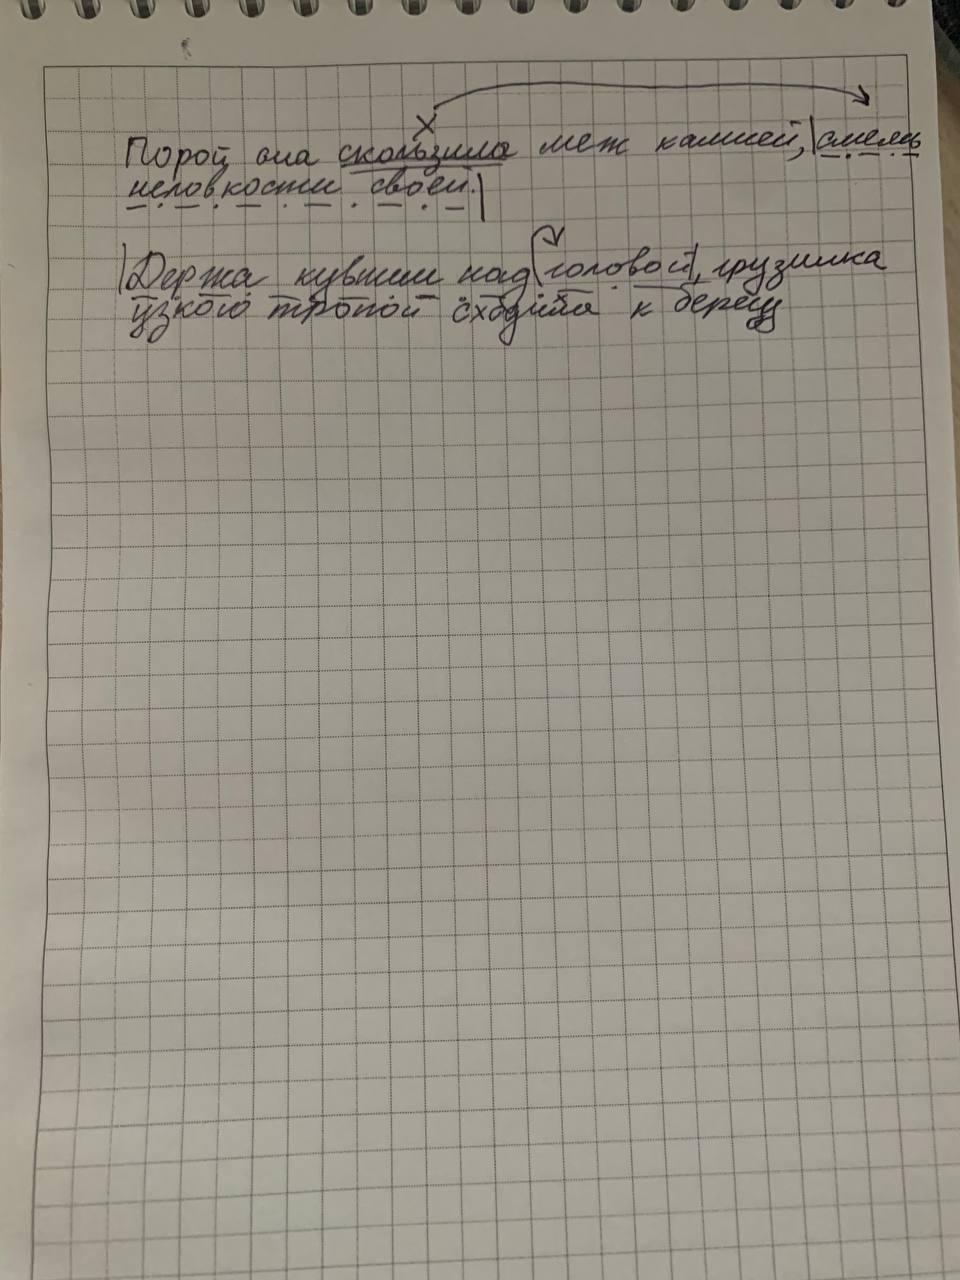 Порой она скользила меж камней, смеясь
неловкости своей.
Держа кувшин над головой, грузинка
узкою тропой сходила к берегу